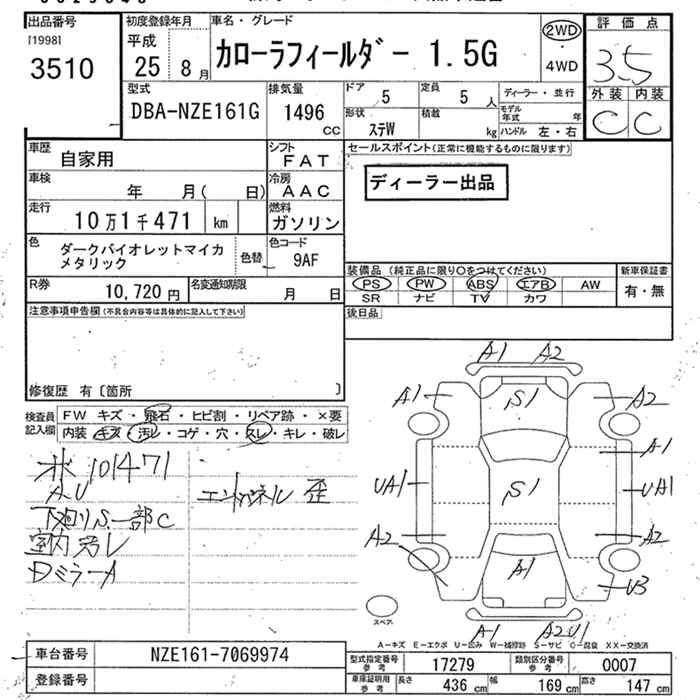 出品番号
[1998]
3510
初度登録年月
平成
25 8月
車名・グレード
カローラフィールダー 1.5G
2WD
・
4WD
評価点
3.5
外装 内装
C C
型式
DBA-NZE161G
排気量
1496
CC
ドア 5
定員 5 人
形状
ステW
積載
kg
ディーラー・並行
モデル
年式 年
ハンドル 左・右
車歴
自家用
シフト
FAT
車検
年 月( 日)
冷房
AAC
走行
10万1千471 km
燃料
ガソリン
色
ダークバイオレットマイカ
メタリック
色替
色コード
9AF
R券
10,720 円
名変通知期限
月 日
セールスポイント(正常に機能するものに限ります)
ディーラー出品
装備品 (純正品に限り○をつけてください)
PS PW ABS エアB AW
SR ナビ TV カワ
新車保証書
有・無
後日品
注意事項申告欄(不具合内容等は具体的に記入して下さい)
修復歴 有〔箇所 〕
検査員
記入欄
FW キズ・飛石・ヒビ割・リペア跡・×要
内装 キズ・汚レ・コゲ・穴・スレ・キレ・破レ
米 101471
A.U
下廻りS.一部C
室内汚レ
Dミラー A
エンドパネル 歪
A1 A2
A1 S1 A2
A1
UA1 S1 UA1
A2 A1 A2
U3
スペア
A1 A2 U1
A-キズ E-エクボ U-凹み W-補修跡 S-サビ C-腐食 XX-交換済
車台番号
NZE161-7069974
登録番号
型式指定番号
参考
17279
類別区分番号
参考
0007
車庫証明用
参考
長さ 436 cm
幅 169 cm
高さ 147 cm